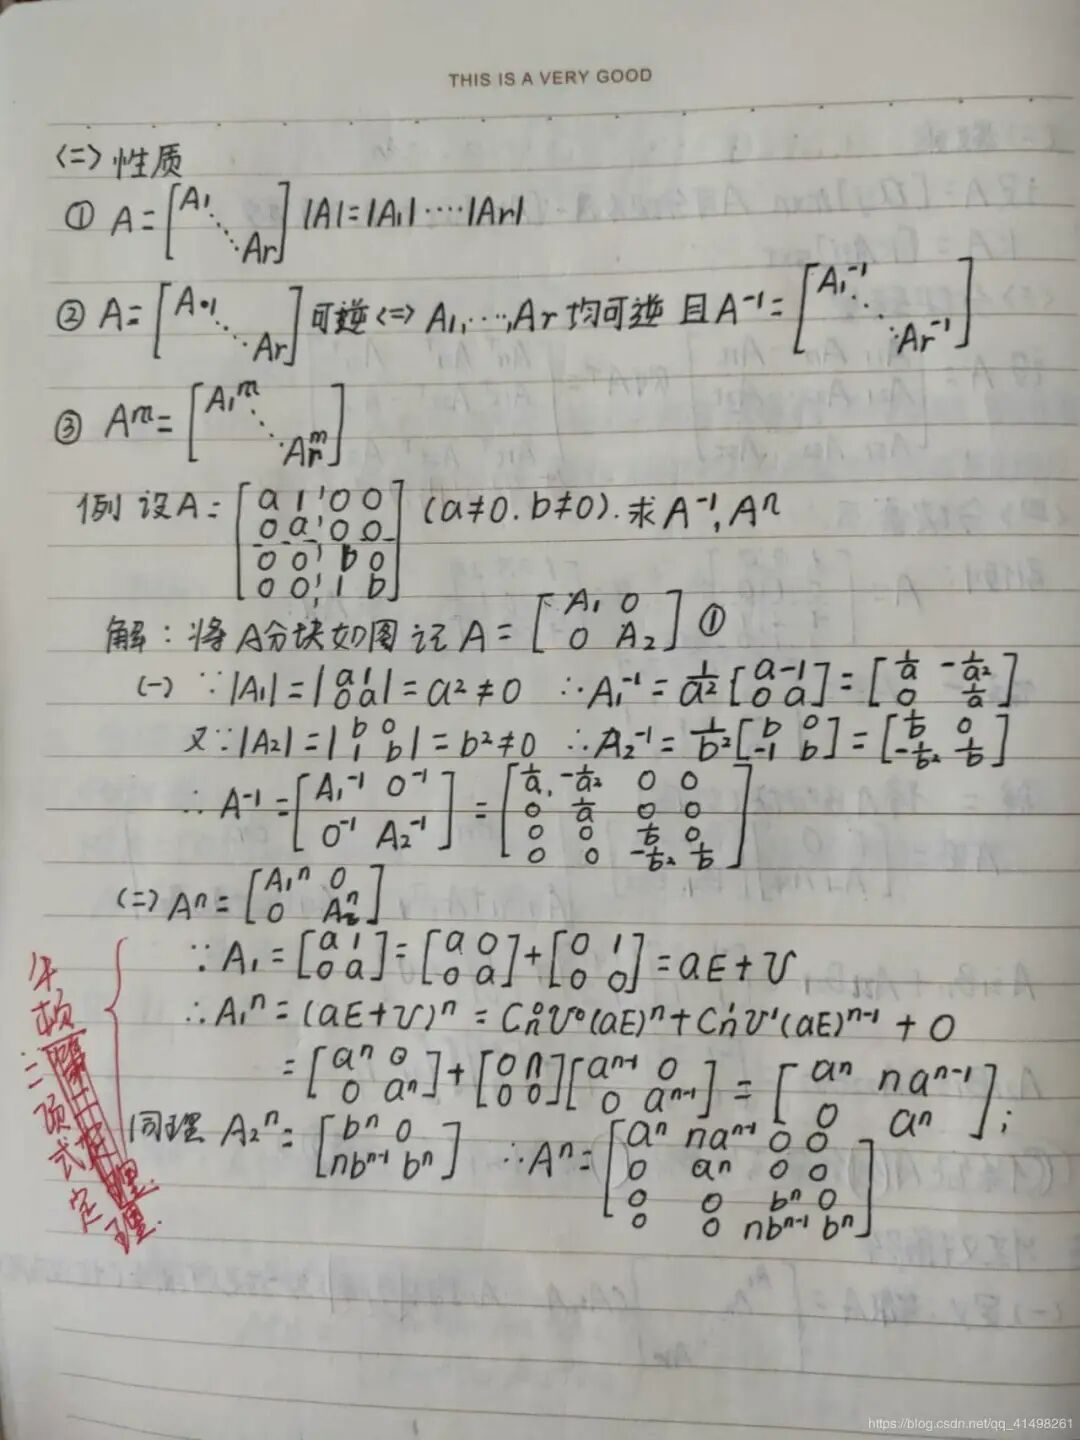 THIS IS A VERY GOOD
<二> 性质
① A = [A₁ ⋱ Ar] |A| = |A₁| ···· |Ar|
② A = [A₁ ⋱ Ar] 可逆 <=> A₁, ···, Ar 均可逆 且 A⁻¹ = [A₁⁻¹ ⋱ Ar⁻¹]
③ Aᵐ = [A₁ᵐ ⋱ Arᵐ]
例 设 A = [a 1 0 0; 0 a 0 0; 0 0 b 0; 0 0 1 b] (a≠0. b≠0). 求 A⁻¹, Aⁿ
解: 将A分块如图 记 A = [A₁ 0; 0 A₂] ①
(一) ∵ |A₁| = |a 1; 0 a| = a² ≠ 0 ∴ A₁⁻¹ = 1/a² [a -1; 0 a] = [1/a -1/a²; 0 1/a]
又∵ |A₂| = |b 0; 1 b| = b² ≠ 0 ∴ A₂⁻¹ = 1/b² [b 0; -1 b] = [1/b 0; -1/b² 1/b]
∴ A⁻¹ = [A₁⁻¹ 0⁻¹; 0⁻¹ A₂⁻¹] = [1/a, -1/a² 0 0; 0 1/a 0 0; 0 0 1/b 0; 0 0 -1/b² 1/b]
(二) Aⁿ = [A₁ⁿ 0; 0 A₂ⁿ]
∵ A₁ = [a 1; 0 a] = [a 0; 0 a] + [0 1; 0 0] = aE + U
∴ A₁ⁿ = (aE + U)ⁿ = Cₙ⁰U⁰(aE)ⁿ + Cₙ¹U¹(aE)ⁿ⁻¹ + 0
= [aⁿ 0; 0 aⁿ] + [0 n; 0 0][aⁿ⁻¹ 0; 0 aⁿ⁻¹] = [aⁿ naⁿ⁻¹; 0 aⁿ];
同理 A₂ⁿ = [bⁿ 0; nbⁿ⁻¹ bⁿ] ∴ Aⁿ = [aⁿ naⁿ⁻¹ 0 0; 0 aⁿ 0 0; 0 0 bⁿ 0; 0 0 nbⁿ⁻¹ bⁿ]
牛顿二项式定理.
https://blog.csdn.net/qq_41498261